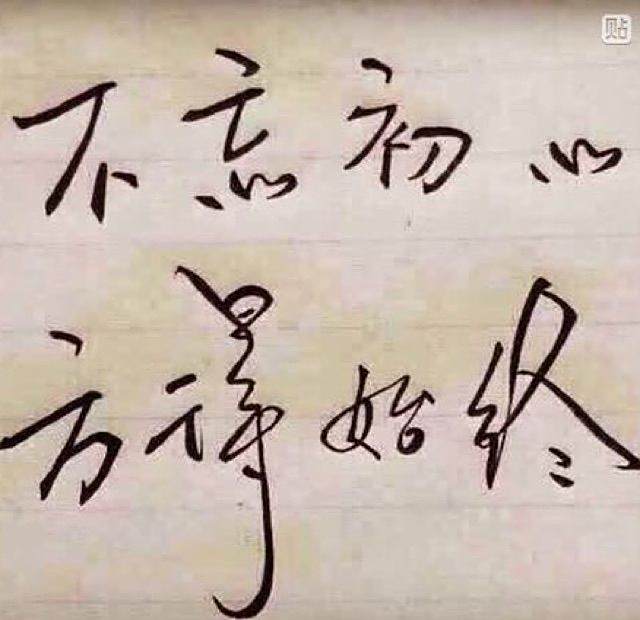 不忘初心
方得始终
贴